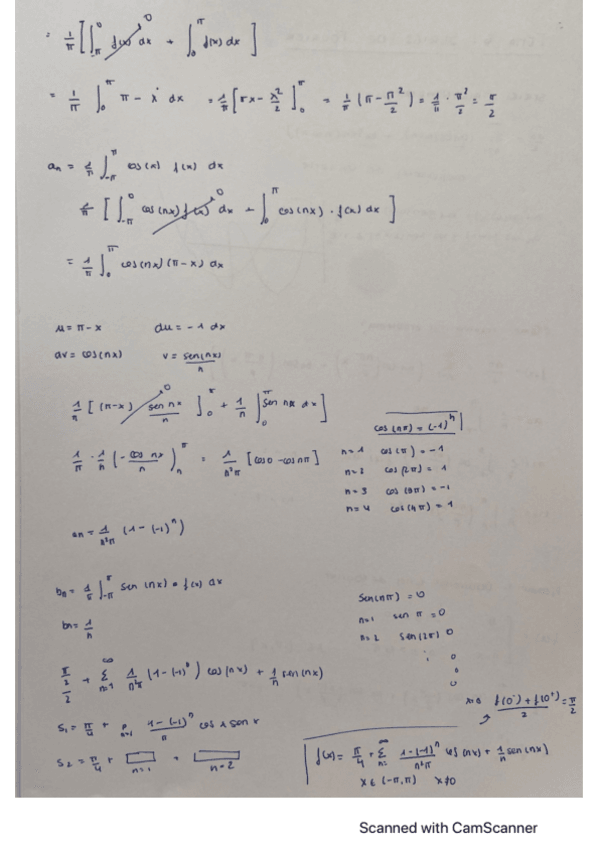 = 1/π [ ∫_{-π}^{0} f(x) dx + ∫_0^π f(x) dx ]
= 1/π ∫_0^π π - x dx = 1/π [πx - x²/2]_0^π = 1/π (π - π²/2) = 1/π · π²/2 = π/2
a_n = 1/π ∫_{-π}^π cos(nx) f(x) dx
1/π [ ∫_{-π}^0 cos(nx) f(x) dx + ∫_0^π cos(nx) · f(x) dx ]
= 1/π ∫_0^π cos(nx) (π-x) dx
u = π - x du = -1 dx
dv = cos(nx) v = sen(nx)/n
1/π [ (π-x) sen nx/n ]_0^π + 1/n ∫_0^π sen nx dx ]
cos(nπ) = (-1)^n
1/π · 1/n (- cos nx/n)_n^π = 1/n²π [cos 0 - cos nπ]
n=1 cos(π) = -1
n=2 cos(2π) = 1
n=3 cos(3π) = -1
n=4 cos(4π) = 1
a_n = 1/n²π (1 - (-1)^n)
b_n = 1/π ∫_{-π}^π sen (nx) · f(x) dx
b_n = 1/n
sen(nπ) = 0
n=1 sen π = 0
n=2 sen(2π) 0
π/2/2 + Σ_{n=1}^∞ 1/n²π (1 - (-1)^n) cos(nx) + 1/n sen(nx)
x=0 f(0⁻) + f(0⁺)/2 = π/2
S₁ = π/4 + 1-(-1)^n/π cos x sen x
S₂ = π/4 + n=1 + n=2
f(x) = π/4 + Σ_{n=1}^∞ 1-(-1)^n/n²π cos(nx) + 1/n sen(nx)
x ∈ (-π, π) x≠0
Scanned with CamScanner